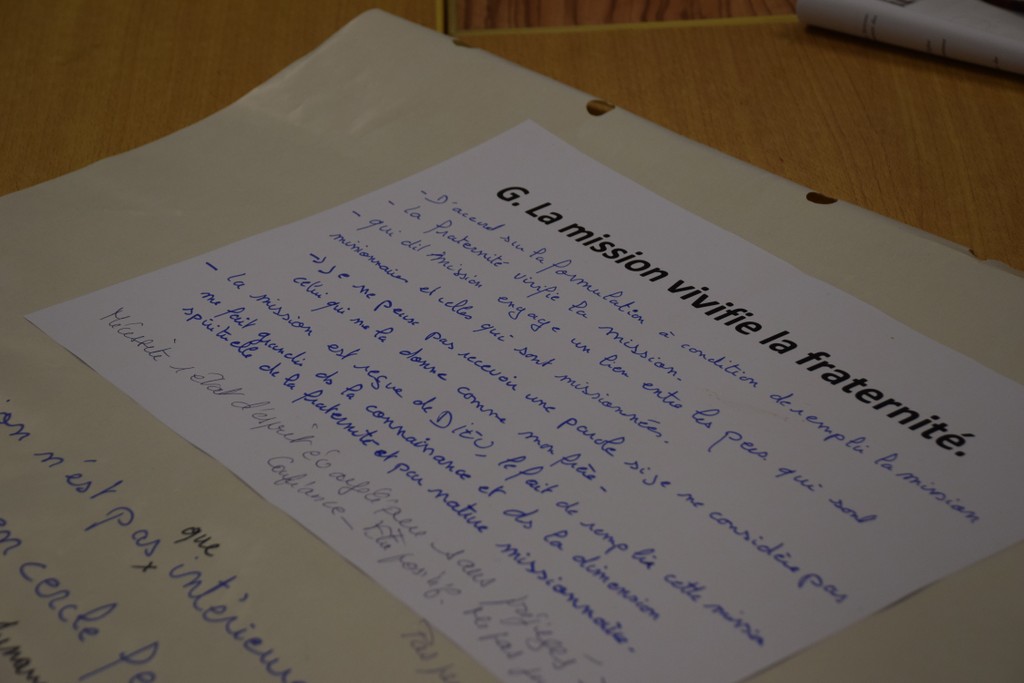 G. La mission vivifie la fraternité.
- D'accord sur la formulation à condition de remplir la mission
- La fraternité vivifie la mission.
- qui dit mission engage un lien entre les pers qui sont
missionnaires et celles qui sont missionnées.
→ je ne peux pas recevoir une parole si je ne considère pas
celui qui me la donne comme mon frère -
- La mission est reçue de DIEU, le fait de remplir cette mission
me fait grandir ds la connaissance et ds la dimension
spirituelle de la fraternité et par nature missionnaire.
Nécessité l'état d'esprit sans préjugés -
Confiance - Etre positif. Ne pas
Pas
n'est pas que intérieur
cercle